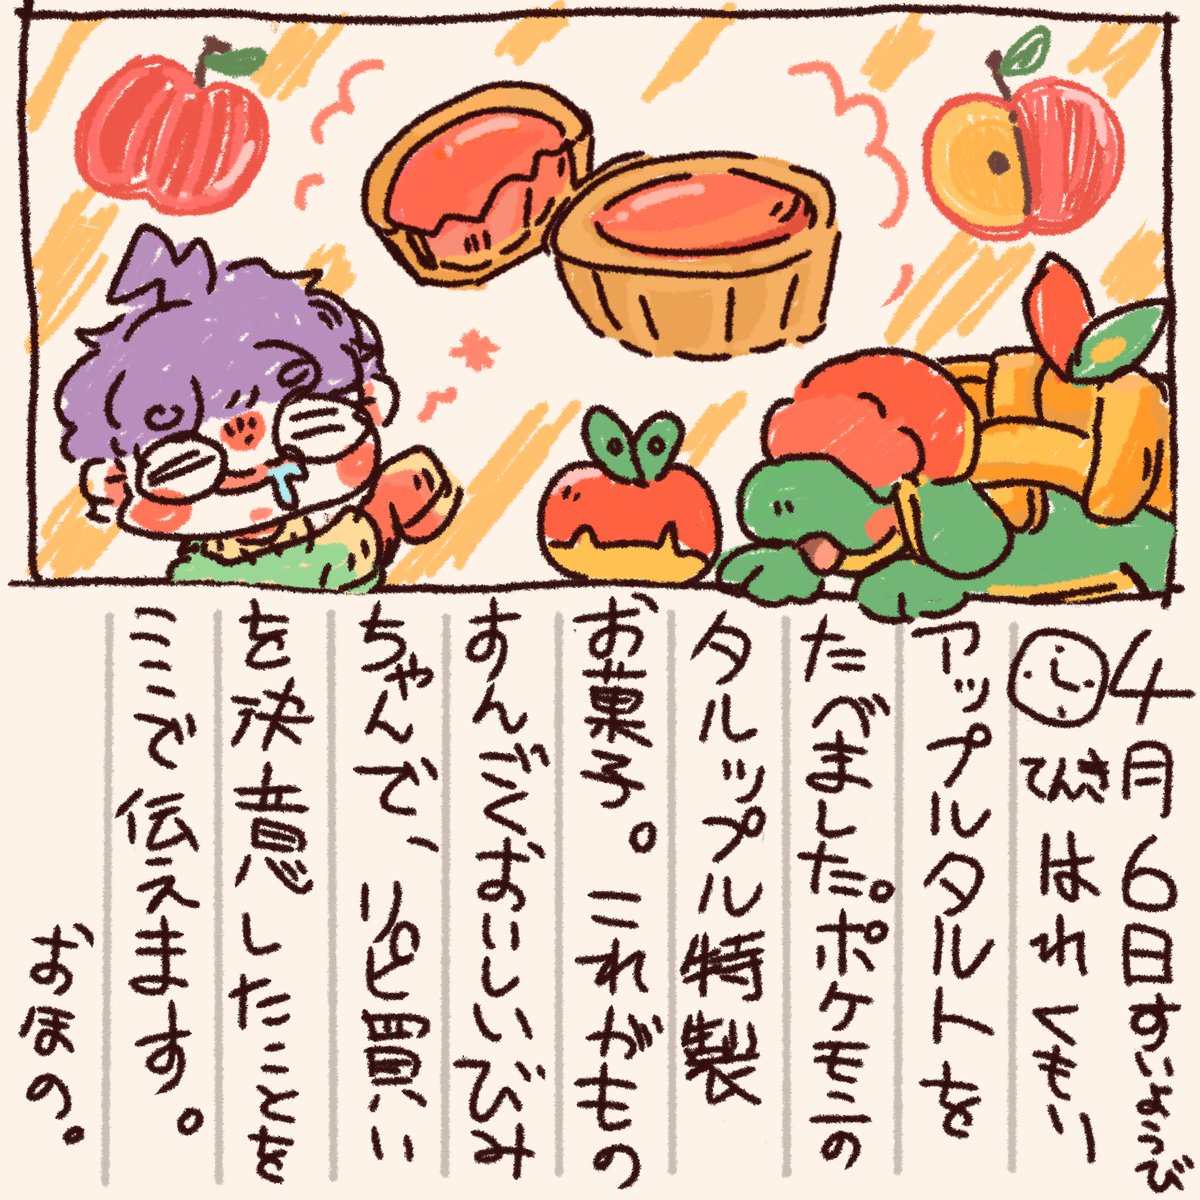 4月6日すいようび
はれ くもり
アップルタルトを
たべました。ポケモニの
タルップル特製
お菓子。これがもの
すんごくおいしいびみ
ちゃんで、リピ買い
を決意したことを
ここで伝えます。
おほの。